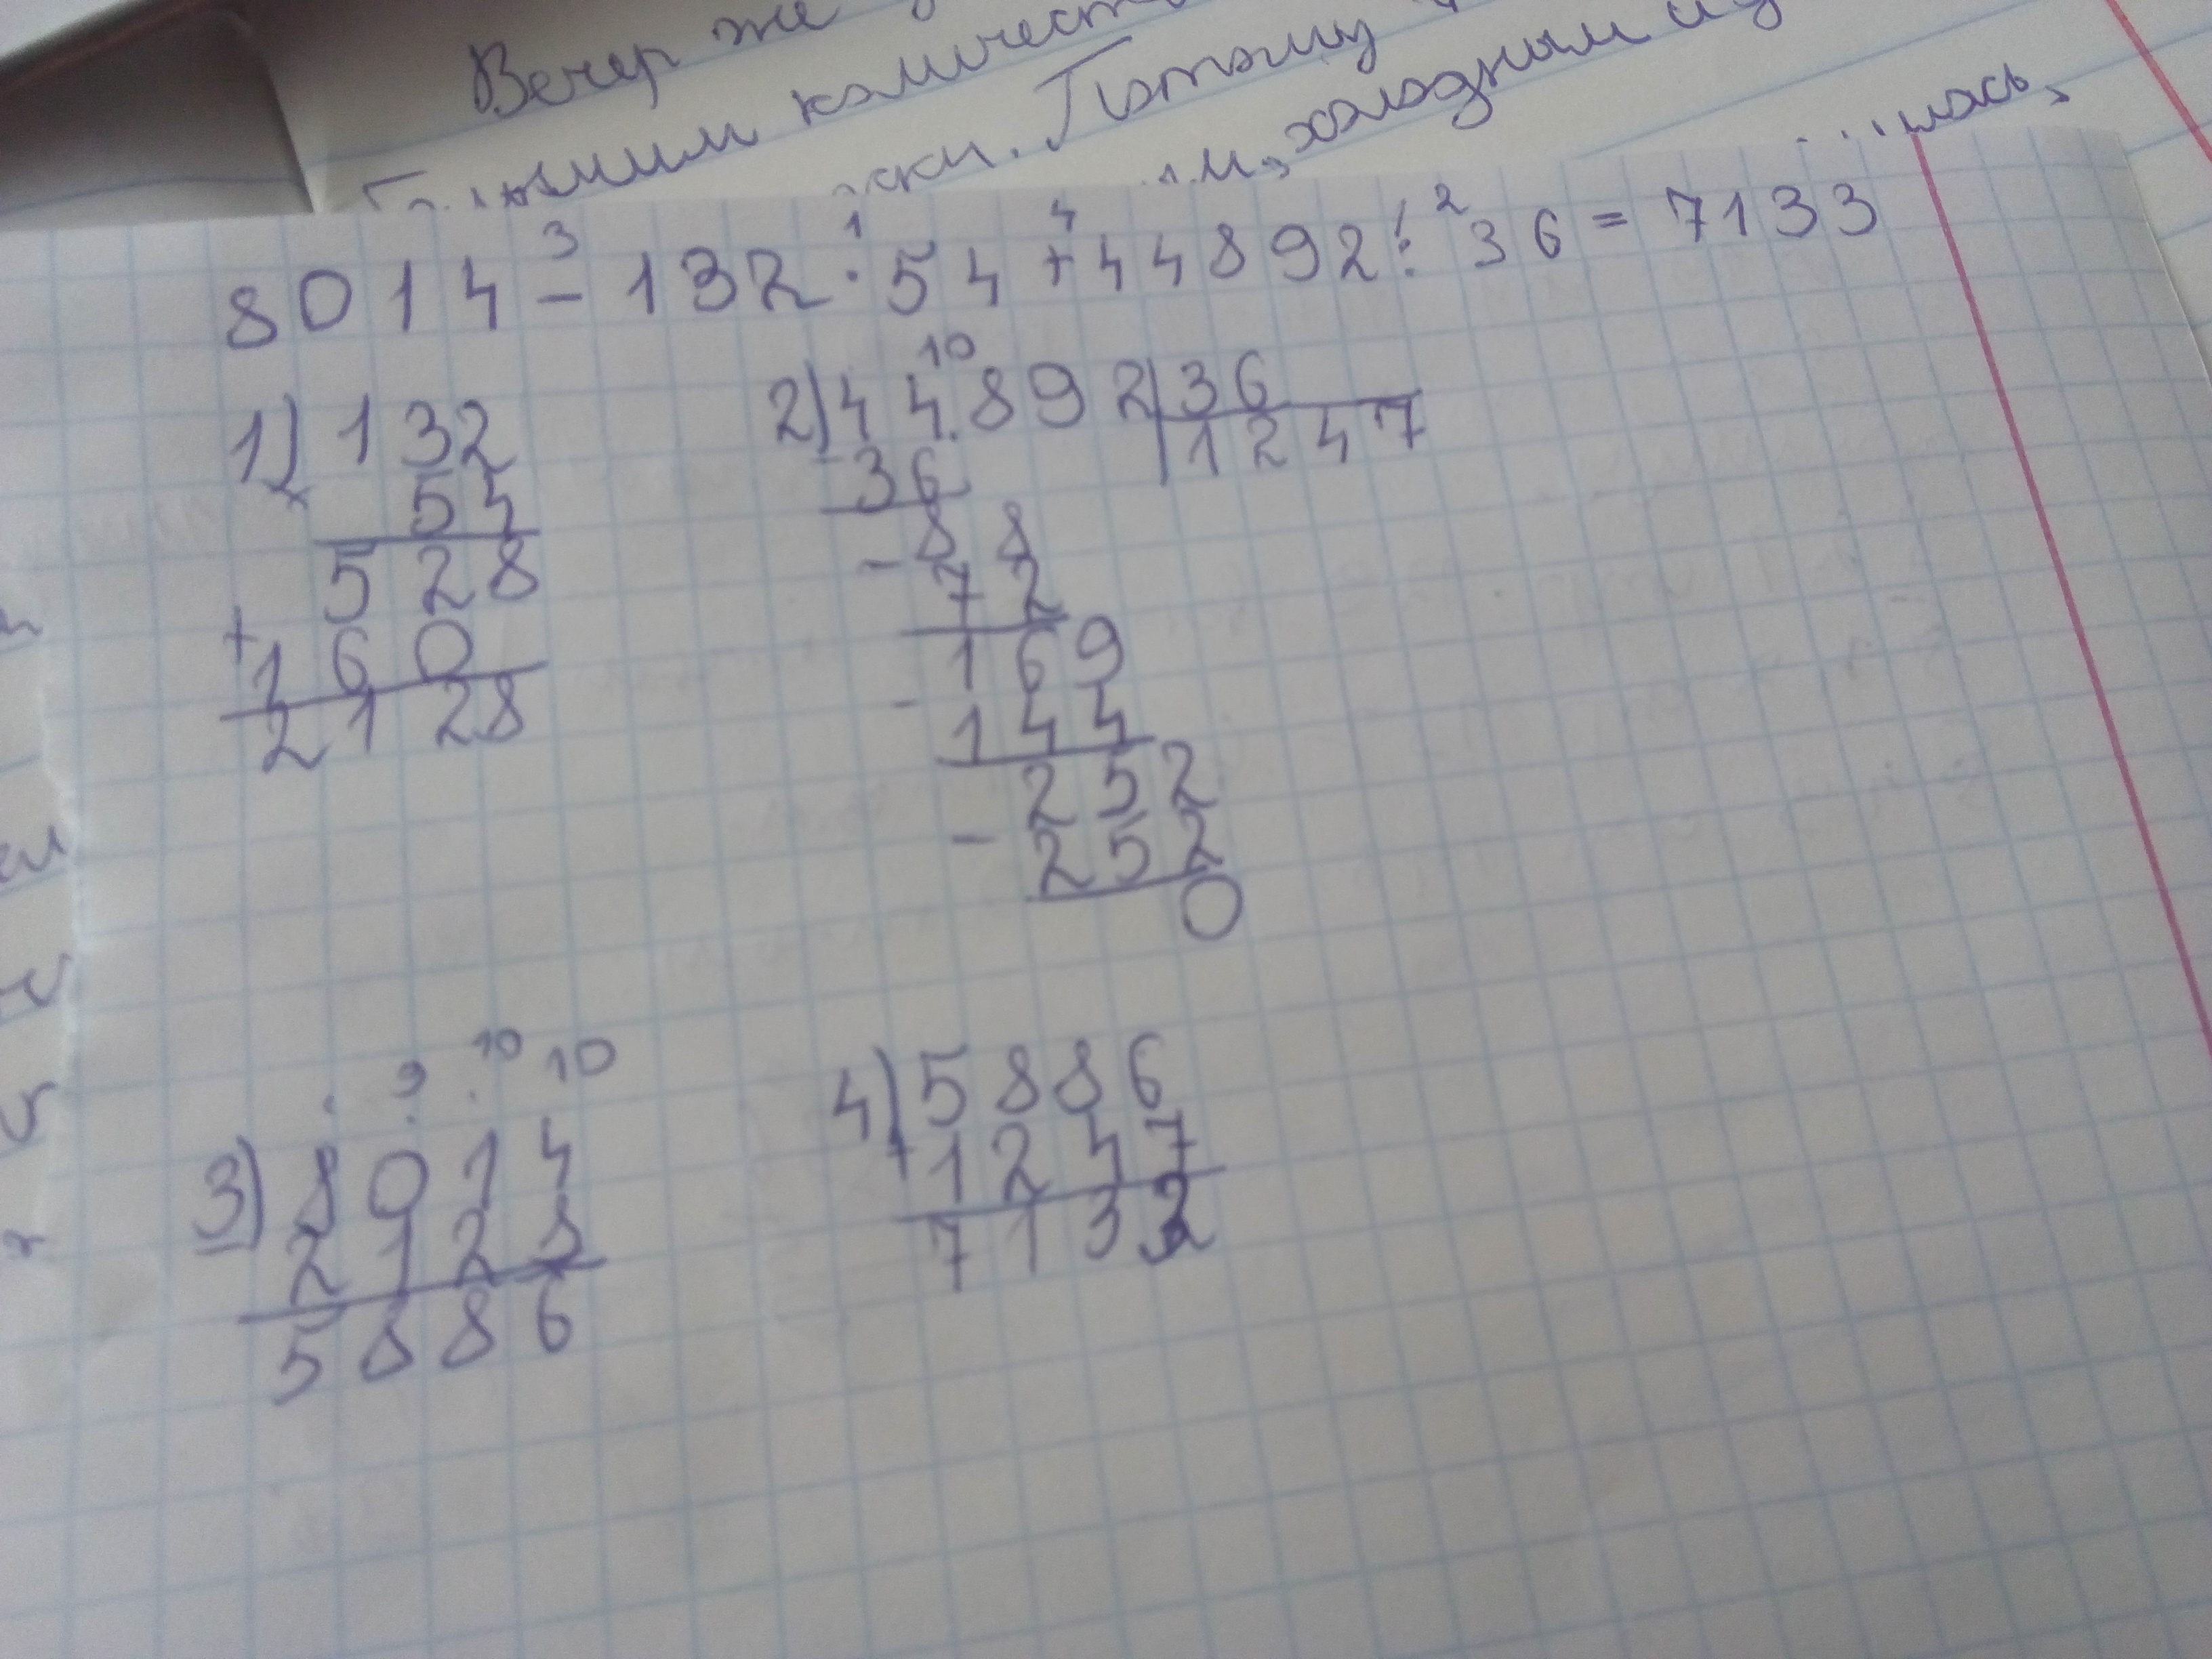 Вечер же
количест
ски. Потому
м, холодным из
лась,
8014 - 132 · 54 + 44892 : 36 = 7133
3 1 4 2
1) 132
× 54
528
+ 160
2128
10
2) 44892 | 36
- 36 | 1247
- 88
72
169
- 144
252
- 252
0
9 10 10
3) 8014
- 2128
5886
4) 5886
+ 1247
713